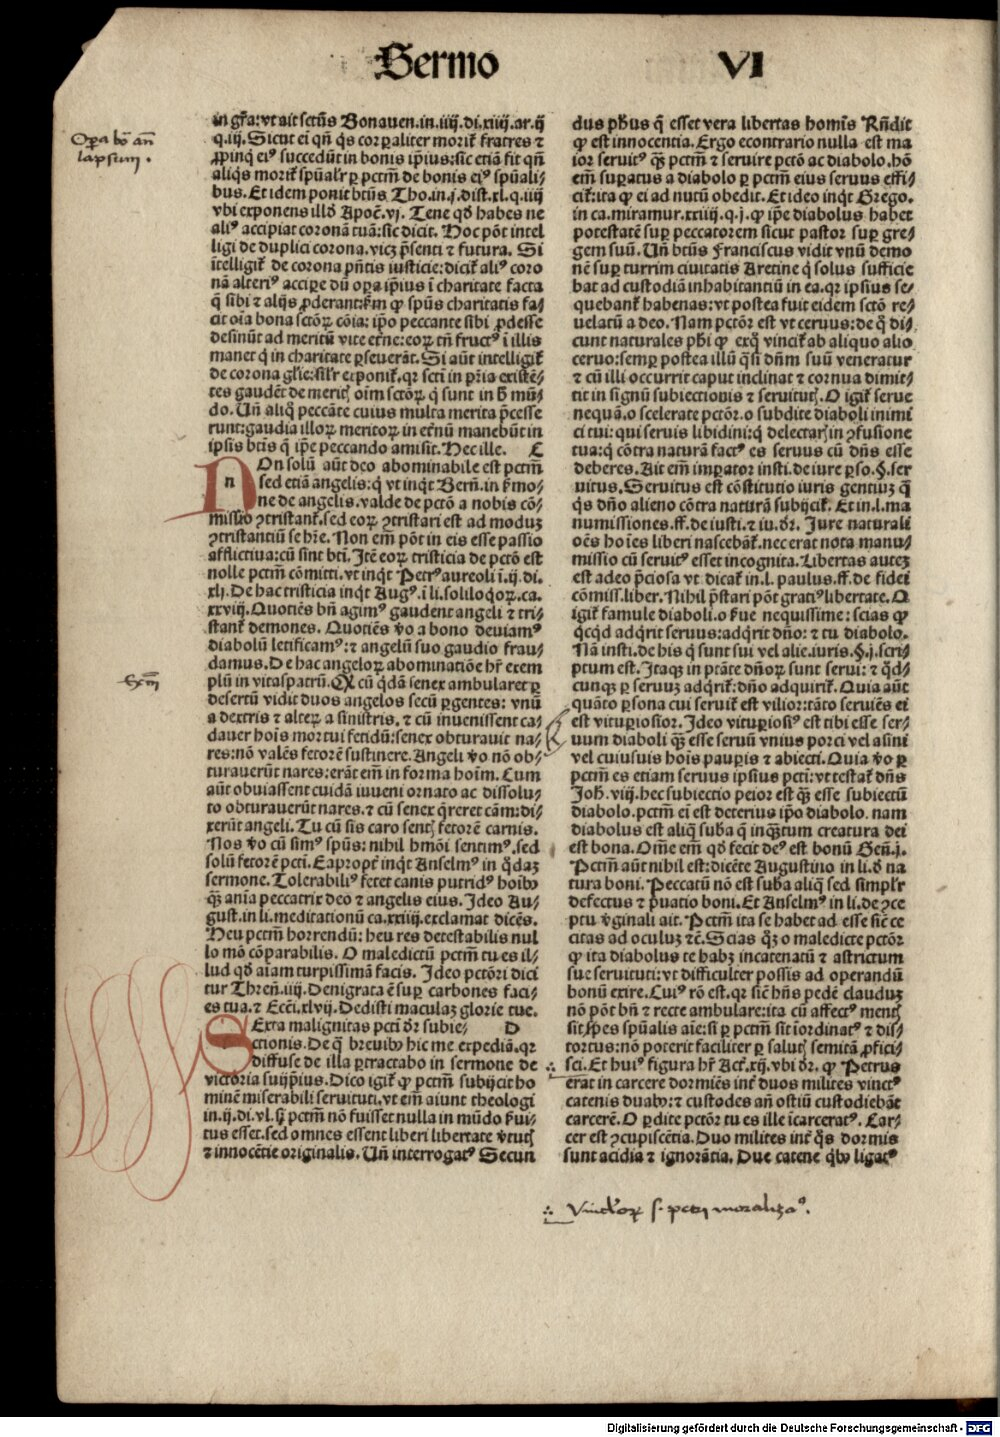 Sermo VI
Opa bo an
lapsum.
in gr̄a: vt ait sctūs Bonauen. in .iiij. di. xiiij. ar. ij
q. ij. Sicut eī qn̄ q̄s corꝑaliter moriť fratres ⁊
ꝓpinq̄ eiꝰ succedūt in bonis ip̄ius: sic etiā fit qn̄
aliq̄s moriť spūalr̄ ꝑ pctm̄ de bonis eiꝰ spūali⸗
bus. Et idem ponit btūs Tho. in .j. dist. xl. q. iiij
vbi exponens illd̄ Apoc̄. vj. Tene qd̄ habes ne
aliꝰ accipiat coronā tuā: sic dicit. Hoc pōt intel
ligi de duplici corona. vicꝫ p̄senti ⁊ futura. Si
ītelligiť de corona pn̄tis iusticie: diciť aliꝰ coro
nā alteriꝰ accipe dū oꝑa ip̄ius ī charitate facta
q̄ sibi ⁊ alijs ꝓderant: km̄ ꝙ spūs charitatis fa⸗
cit oīa bona sctōꝝ cōia: ip̄o peccante sibi ꝓdesse
desinūt ad meritū vite et̄ne: eoꝝ tn̄ fructꝰ ī illis
manet q̄ in charitate ꝑseuerāt. Si aūt intelligiť
de corona gl̄ie: silr̄ ei poniť. qꝛ sctī in pr̄ia existē⸗
tes gaudēt de meritꝭ oīm sctōꝝ q̄ sunt in h̄ mū⸗
do. Un̄ aliq̄ peccāte cuius multa merita p̄cesse
runt: gaudia illoꝝ meritoꝝ in et̄nū manebūt in
ipsis btīs q̄ ip̄e peccando amisit. Hec ille. C
NOn solū aūt deo abominabile est pctm̄
sed etiā angelis: q̄ vt inq̄t Bern̄. in ẜmo⸗
ne de angelis. valde de pctō a nobis cō⸗
missio ꝯtristanť. sed eoꝝ ꝯtristari est ad moduꝫ
ꝯtristantiū se hr̄e. Non em̄ pōt in eis esse passio
afflictiua: cū sint btī. Itē eoꝝ tristicia de pctō est
nolle pctm̄ cōmitti. vt inq̄t Petrꝰ aureoli ī .ij. di.
xlj. De hac tristicia inq̄t Augꝰ. ī li. soliloq̄oꝝ. ca.
xxviij. Quotiēs bn̄ agimꝰ gaudent angeli ⁊ tri⸗
stanť demones. Quotiēs v̄o a bono deuiamꝰ
diabolū letificamꝰ: ⁊ angelū suo gaudio frau⸗
damus. De hac angeloꝝ abominatiōe hr̄ exem
plū in vitaspatrū. Qꝫ cū q̄dā senex ambularet ꝑ
desertū vidit duos angelos secū ꝑgentes: vnū
a dextris ⁊ alteꝝ a sinistris. ⁊ cū inuenissent ca⸗
dauer hoīs mortui fetidū: senex obturauit na⸗
res: nō valēs fetorē sustinere. Angeli v̄o nō ob⸗
turauerūt nares: erāt em̄ in forma hoīm. Cum
aūt obuiassent cuidā iuueni ornato ac dissolu⸗
to obturauerūt nares. ⁊ cū senex q̄reret cām: di⸗
xerūt angeli. Tu cū sis caro sentꝭ fetorē carnis.
Nos v̄o cū simꝰ spūs: nihil hmōi sentimꝰ. sed
solū fetorē pctī. Eaproptʼ inq̄t Anselmꝰ in q̄daꝫ
sermone. Tolerabiliꝰ fetet canis putridꝰ hoībꝰ
q̄ꝫ anīa peccatrix deo ⁊ angelis eius. Ideo Au⸗
gust. in li. meditationū ca. xxiiij. exclamat dicēs.
Heu pctm̄ horrendū: heu res detestabilis nul
lo mō cōparabilis. O maledictū pctm̄ tu es il⸗
lud qd̄ aīam turpissimā facis. Ideo pctōri dici
tur Thren̄. iiij. Denigrata ē suꝑ carbones faci⸗
es tua. ⁊ Eccī. xlvij. Dedisti maculaꝫ glorie tue.
SExta malignitas pctī dr̄ subie⸗ D
ctionis. De q̄ breuibꝰ hic me expediā. qꝛ
diffuse de illa ꝑtractabo in sermone de
victoria suip̄ius. Dico igiť ꝙ pctm̄ subijcit ho
minē miserabili seruituti. vt em̄ aiunt theologi
in .ij. di. vl. sꝫ pctm̄ nō fuisset nulla in mūdo ẜui⸗
tus esset. sed omnes essent liberi libertate v̄tutꝭ
⁊ innocētie originalis. Un̄ interrogatꝰ Secun
Exm
dus ph̄us q̄ esset vera libertas homīs Rn̄dit
ꝙ est innocentia. Ergo econtrario nulla est ma
ior seruitꝰ q̄ꝫ pctm̄ ⁊ seruire pctō ac diabolo. hō
em̄ suꝑatus a diabolo ꝑ pctm̄ eius seruus effi⸗
ciť: ita ꝙ ei ad nutū obedit. Et ideo inq̄t Grego.
in ca. miramur. xxiiij. q. j. ꝙ ip̄e diabolus habet
potestatē suꝑ peccatorem sicut pastor suꝑ gre⸗
gem suū. Un̄ btūs Franciscus vidit vnū demo
nē suꝑ turrim ciuitatis Aretine q̄ solus sufficie
bat ad custodiā inhabitantiū in ea. qꝛ ipsius se⸗
quebanť habenas: vt postea fuit eidem sctō re⸗
uelatū a deo. Nam pctōr est vt ceruus: de q̄ di⸗
cunt naturales ph̄i ꝙ exq̄ vinciť ab aliquo alio
ceruo: semꝑ postea illū q̄si dn̄m suū veneratur
⁊ cū illi occurrit caput inclinat ⁊ cornua dimit⸗
tit in signū subiectionis ⁊ seruitutꝭ. O igiť serue
nequā. o scelerate pctōr. o subdite diaboli inimi
ci tui: qui seruis libidini: q̄ delectarꝭ in ꝯfusione
tua: q̄ cōtra naturā factꝰ es seruus cū dn̄s esse
deberes. Ait em̄ imꝑator insti. de iure ꝑso. §. ser
uitus. Seruitus est cōstitutio iuris gentiuꝫ q̄
q̄s dn̄o alieno cōtra naturā subijciť. Et in .l. ma
numissiones. ff. de iusti. ⁊ iu. dr̄. Jure naturali
oēs hoīes liberi nascebāť. nec erat nota manu⸗
missio cū seruitꝰ esset incognita. Libertas auteꝫ
est adeo p̄ciosa vt dicať in .l. paulus. ff. de fidei
cōmiss. liber. Nihil p̄stari pōt gratiꝰ libertate. O
igiť famule diaboli. o ẜue nequissime: scias ꝙ
qcqd adq̄rit seruus: adq̄rit dn̄o: ⁊ tu diabolo.
Nā insti. de his q̄ sunt sui vel alie. iuris. §. j. scri⸗
ptum est. Itaqꝫ in ptāte dn̄oꝝ sunt serui: ⁊ q̄d⸗
cunqꝫ ꝑ seruuꝫ adq̄riť: dn̄o adquiriť. Quia aūt
quāto ꝑsona cui seruiť est vilior: tāto seruiēs ei
est vituꝑiosior. Ideo vituꝑiosiꝰ est tibi esse ser⸗
uum diaboli q̄ꝫ esse seruū vnius porci vel asini
vel cuiusuis hoīs pauꝑis ⁊ abiecti. Quia v̄o ꝑ
pctm̄ es etiam seruus ipsius pctī: vt testať dn̄s
Joh̄. viij. hec subiectio peior est q̄ꝫ esse subiectū
diabolo. pctm̄ eī est deterius ip̄o diabolo. nam
diabolus est aliq̄ suba q̄ inq̄ꝫtum creatura dei
est bona. Om̄e em̄ qd̄ fecit deꝰ est bonū Gen̄. j.
Pctm̄ aūt nihil est: dicēte Augustino in li. d̄ na
tura boni. Peccatū nō est suba aliq̄ sed simplr̄
defectus ⁊ p̄uatio boni. Et Anselmꝰ in li. de ꝯce
ptu v̄ginali ait. Pctm̄ ita se habet ad esse sic̄ ce
citas ad oculuꝫ ⁊c̄. Scias q̄ꝫ o maledicte pctōr
ꝙ ita diabolus te habꝫ incatenatū ⁊ astrictum
sue seruituti: vt difficulter possis ad operandū
bonū exire. Cuiꝰ rō est. qꝛ sic̄ hn̄s pedē clauduꝫ
nō pōt bn̄ ⁊ recte ambulare: ita cū affectꝰ mentꝭ
sit spes spūalis aīe: si ꝑ pctm̄ sit īordinatꝰ ⁊ dis⸗
tortus: nō poterit faciliter ꝑ salutꝭ semitā ꝓfici⸗
sci. Et huiꝰ figura hr̄ Acť. xij. vbi dr̄. ꝙ Petrus
erat in carcere dormiēs inť duos milites vinctꝰ
catenis duabꝰ: ⁊ custodes an̄ ostiū custodiebāt
carcerē. O ꝑdite pctōr tu es ille īcarceratꝰ. Car⸗
cer est ꝯcupiscētia. Duo milites inť q̄s dormis
sunt acidia ⁊ ignorātia. Due catene q̄bꝰ ligatꝰ
∴ Vincl'oꝝ s. petri moralizaꝰ.
Digitalisierung gefördert durch die Deutsche Forschungsgemeinschaft · DFG